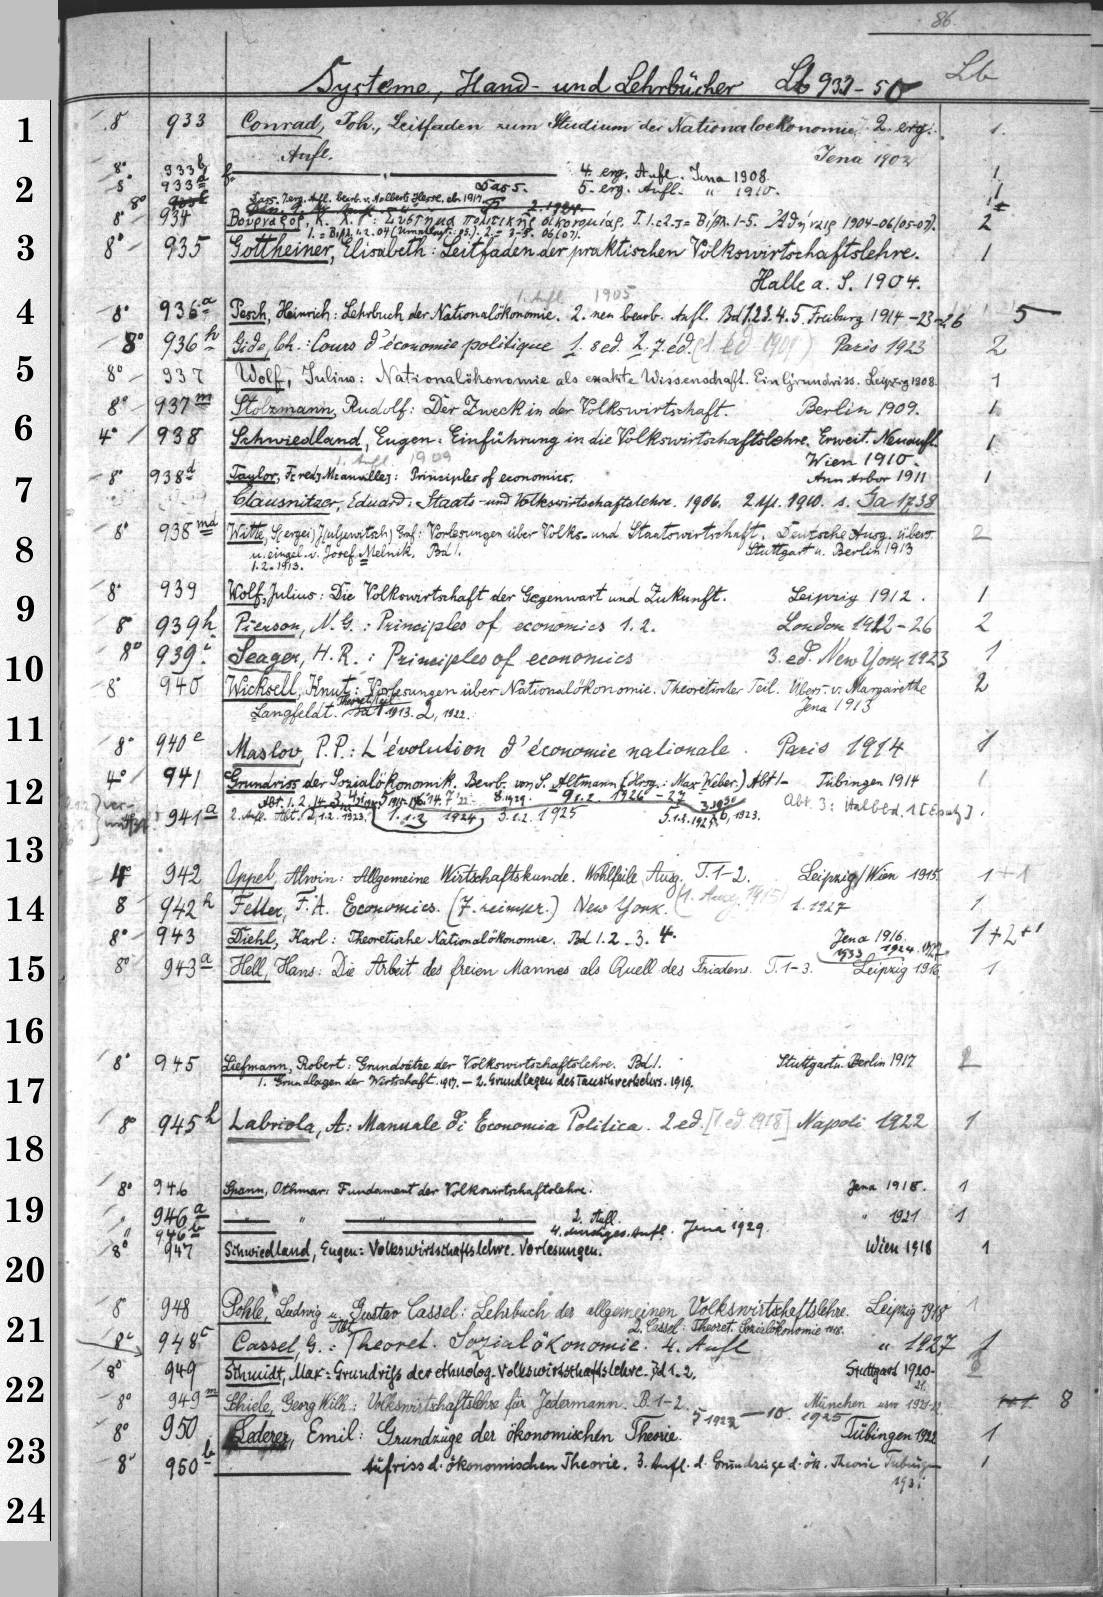 86.
Systeme, Hand- und Lehrbücher Lb 933-50 Lb
1 8 933 Conrad, Joh., Leitfaden zum Studium der Nationaloekonomie. 2. erg.
Aufl. Jena 1902 1.
8° 933b 4. erg. Aufl. Jena 1908 1
2 8° 933d Dass. 5. erg. Aufl. " 1910. 1
8° Dass. 7erg. Aufl. bearb. v. Albert Hesse. 1917.
8° 934 K. X. Σύστημα πολιτικῆς οἰκονομίας. T. 1-5. 1904-06/05-07). 2
3 8° 935 Gottheiner, Elisabeth: Leitfaden der praktischen Volkswirtschaftslehre. 1
Halle a. S. 1904.
1. Aufl. 1905
4 8° 936a Pesch, Heinrich: Lehrbuch der Nationalökonomie. 2. neu bearb. Aufl. Bd 1.2.3.4.5 Freiburg 1914-23-26 5
8° 936h Gide, Ch.: Cours d'économie politique 1. 8 ed. 2. 7. éd. (1. ed 1909) Paris 1923 2
5 8° 937 Wolf, Julius: Nationalökonomie als exakte Wissenschaft. Ein Grundriss. Leipzig 1908 1
8° 937m Stolzmann, Rudolf: Der Zweck in der Volkswirtschaft. Berlin 1909. 1
6 4° 938 Schwiedland, Eugen: Einführung in die Volkswirtschaftslehre. Erweit. Neuaufl. 1
Wien 1910.
1. Aufl. 1909
8° 938d Taylor, Fred Manville: Principles of economics. Ann Arbor 1911 1
7 Clausnitzer, Eduard: Staats- und Volkswirtschaftslehre. 1906. 2 Afl. 1910. s. Ja 1738
8° 938md Witte, S(ergei) J(uljewitsch) Graf: Vorlesungen über Volks- und Staatswirtschaft. Deutsche Ausg. übers. 2
8 u. eingel. v. Josef Melnik. Bd 1. Stuttgart u. Berlin 1913
1.2.1913.
8° 939 Wolf, Julius: Die Volkswirtschaft der Gegenwart und Zukunft. Leipzig 1912. 1
9 8° 939h Pierson, N. G.: Principles of economics 1. 2. London 1912-26 2
10 8° 939i Seager, H. R.: Principles of economics 3. ed. New York 1923 1
8° 940 Wicksell, Knut: Vorlesungen über Nationalökonomie. Theoretischer Teil. Übers. v. Margarethe 2
Langfeldt. Bd 1. 1913. 2, 1922. Jena 1913
11 8° 940e Maslov, P. P.: L'évolution d'économie nationale. Paris 1914 1
4° 941 Grundriss der Sozialökonomik. Bearb. von S. Altmann (Hrsg: Max Weber.) Abt 1- Tübingen 1914 1
12 Abt. 1. 2. 8. 1929. 9 1.2. 1926-27 Abt. 3: Halbbd. 1 [Ersatz].
941a 2. Aufl. Abt. 1.2. 1923. 1.1.2 1924. 5 1.2. 1925
13
4° 942 Oppel, Alwin: Allgemeine Wirtschaftskunde. Wohlfeile Ausg. T. 1-2. Leipzig/Wien 1915. 1+1
14 8 942h Fetter, F. A. Economics. (7. reimpr.) New York. (1. Ausg. 1915) 1. 1927 1
8° 943 Diehl, Karl: Theoretische Nationalökonomie. Bd 1. 2. 3. 4. Jena 1916. 1+2+1
1933 1924
15 8° 943a Hell, Hans: Die Arbeit des freien Mannes als Quell des Friedens. T. 1-3. Leipzig 1916. 1
16
8° 945 Liefmann, Robert: Grundsätze der Volkswirtschaftslehre. Bd 1. Stuttgart u. Berlin 1917 2
17 1. Grundlagen der Wirtschaft. 1917. — 2. Grundlagen des Tauschverkehrs. 1919.
8° 945h Labriola, A: Manuale di Economia Politica. 2 ed. [1 ed 1918] Napoli 1922 1
18
8° 946 Spann, Othmar: Fundament der Volkswirtschaftslehre. Jena 1918. 1
19 " 946a " 2. Aufl. " 1921 1
" 946b 4. durchges. Aufl. Jena 1929.
8° 947 Schwiedland, Eugen: Volkswirtschaftslehre. Vorlesungen. Wien 1918 1
20
8° 948 Pohle, Ludwig u. Gustav Cassel: Lehrbuch der allgemeinen Volkswirtschaftslehre. Leipzig 1918 1
21 Abt. 2. Cassel: Theoret. Sozialökonomie 1918.
8° 948c Cassel, G.: Theoret. Sozialökonomie. 4. Aufl " 1927 1
8° 949 Schmidt, Max: Grundriß der ethnolog. Volkswirtschaftslehre. Bd 1. 2. Stuttgart 1920- 2
22 8° 949m Schiele, Georg Wilh.: Volkswirtschaftslehre für Jedermann. B. 1-2. München 1921 8
5 1922 — 10. 1925
8° 950 Lederer, Emil: Grundzüge der ökonomischen Theorie. Tübingen 1922 1
23 8° 950b Aufriss d. ökonomischen Theorie. 3. Aufl. d. Grundzüge d. ök. Theorie Tübingen 1
1931
24